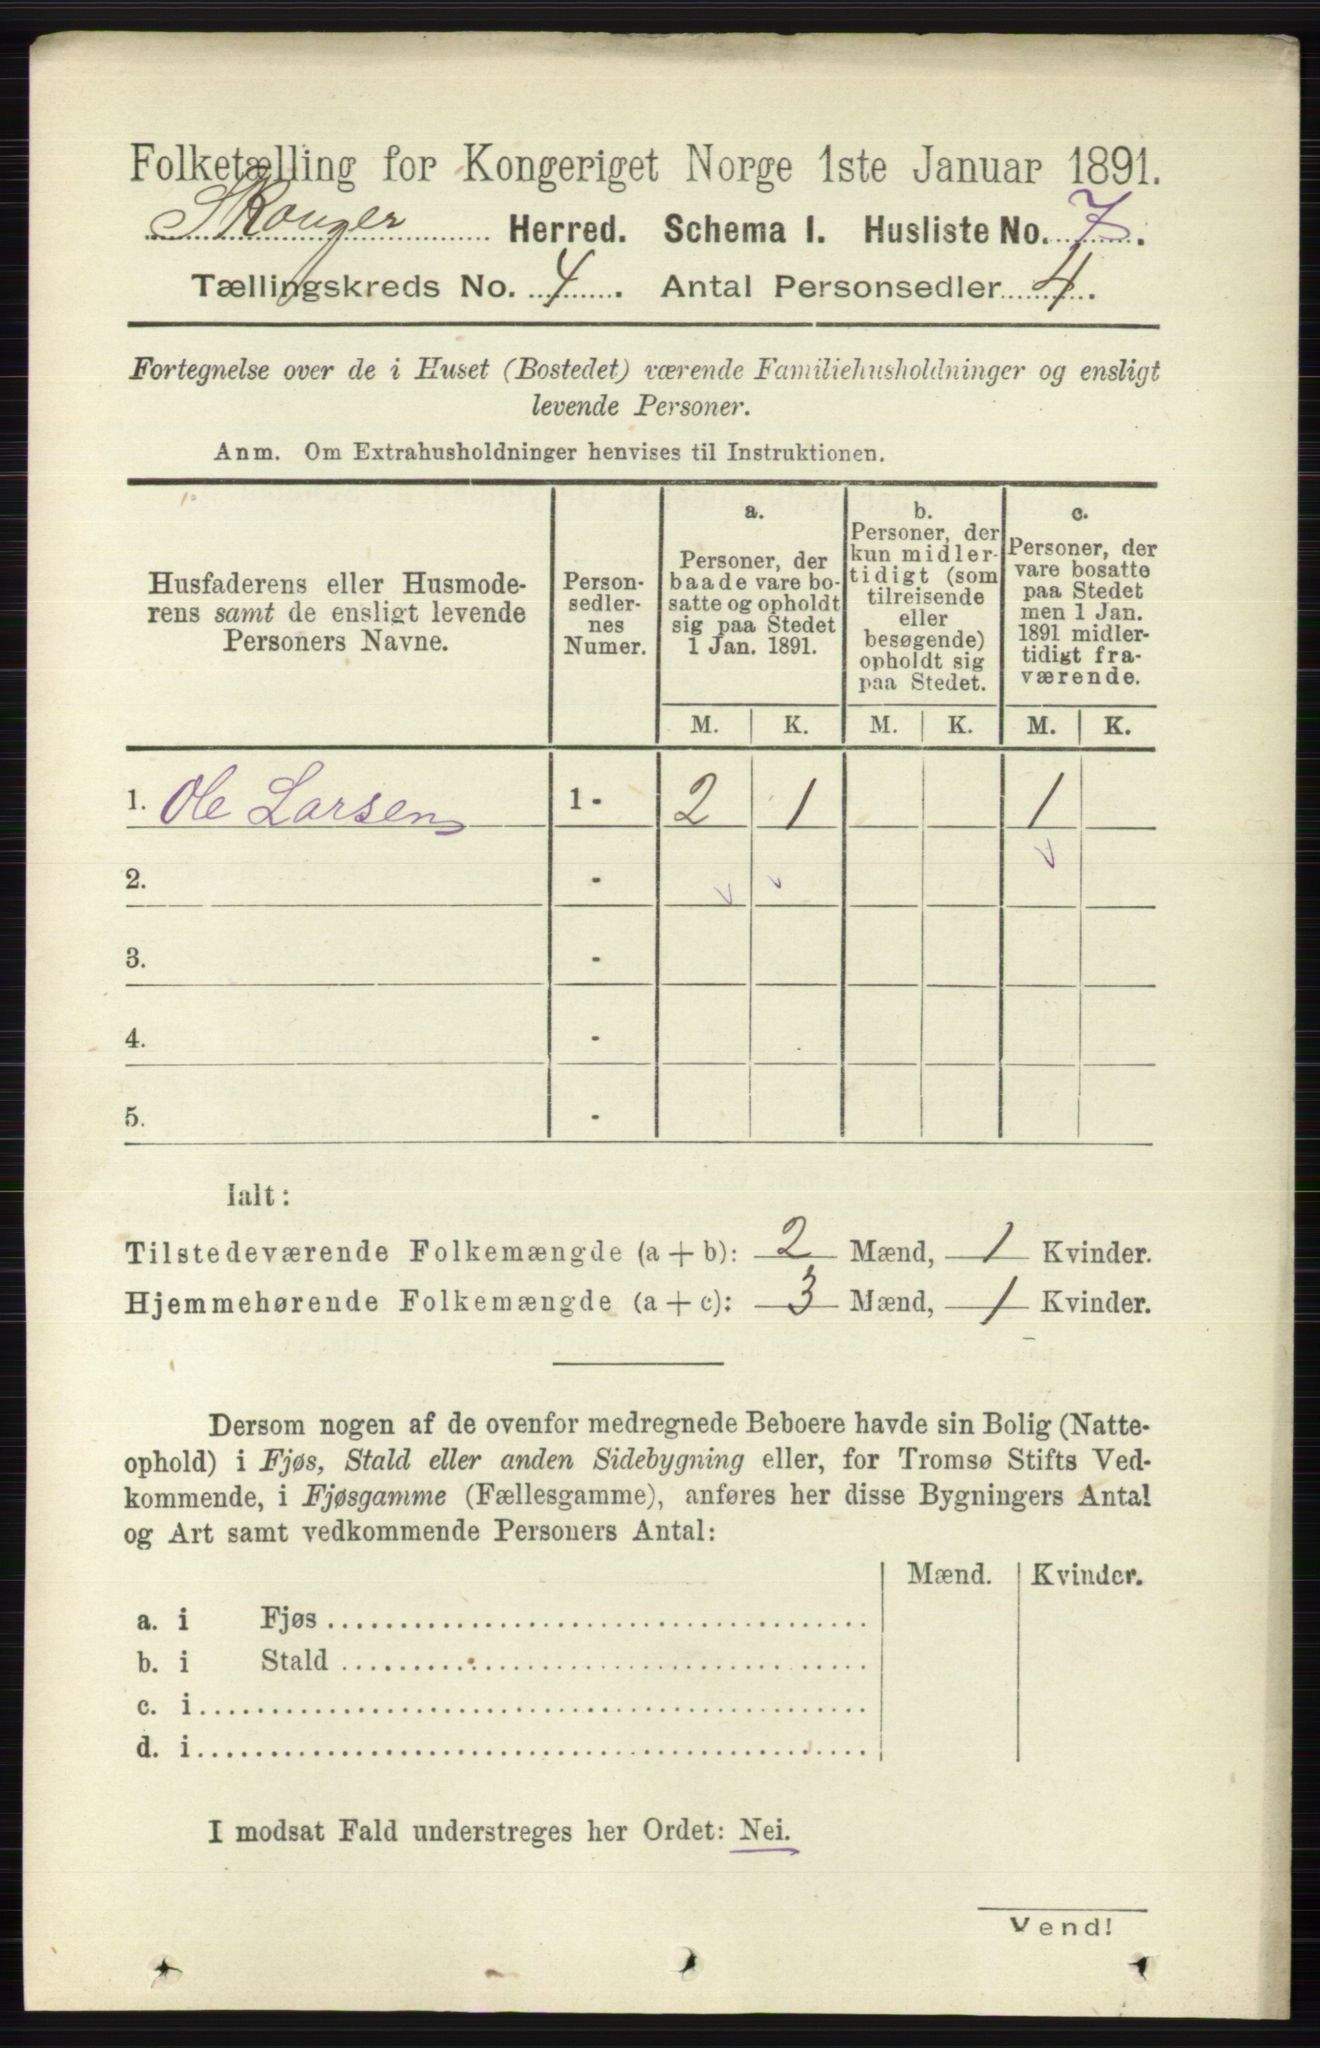 Folketælling for Kongeriget Norge 1ste Januar 1891.
Skouger Herred. Schema I. Husliste No. 7.
Tællingskreds No. 4. Antal Personsedler 4.
Fortegnelse over de i Huset (Bostedet) værende Familiehusholdninger og ensligt
levende Personer.
Anm. Om Extrahusholdninger henvises til Instruktionen.
Husfaderens eller Husmode-
rens samt de ensligt levende
Personers Navne.
Person-
sedler-
nes
Numer.
a.
Personer, der
baade vare bo-
satte og opholdt
sig paa Stedet
1 Jan. 1891.
b.
Personer, der
kun midler-
tidigt (som
tilreisende
eller
besøgende)
opholdt sig
paa Stedet.
c.
Personer, der
vare bosatte
paa Stedet
men 1 Jan.
1891 midler-
tidigt fra-
værende.
M. K. M. K. M. K.
1. Ole Larsen 1 - 2 1 1
2. -
3. -
4. -
5. -
Ialt:
Tilstedeværende Folkemængde (a + b): 2 Mænd, 1 Kvinder.
Hjemmehørende Folkemængde (a + c): 3 Mænd, 1 Kvinder.
Dersom nogen af de ovenfor medregnede Beboere havde sin Bolig (Natte-
ophold) i Fjøs, Stald eller anden Sidebygning eller, for Tromsø Stifts Ved-
kommende, i Fjøsgamme (Fællesgamme), anføres her disse Bygningers Antal
og Art samt vedkommende Personers Antal:
Mænd. Kvinder.
a. i Fjøs
b. i Stald
c. i
d. i
I modsat Fald understreges her Ordet: Nei.
Vend!